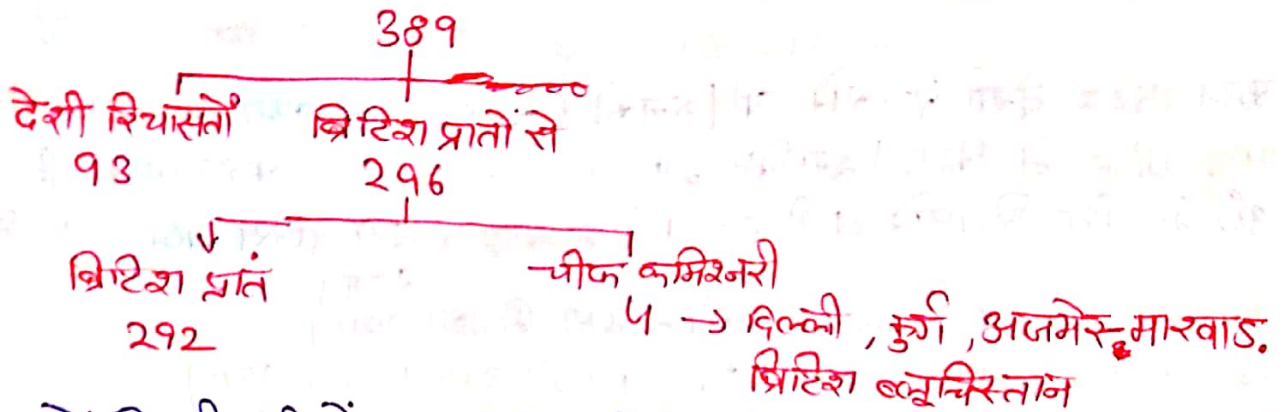 389
देशी रियासतों ब्रिटिश प्रातों से
93 296
ब्रिटिश प्रातं चीफ कमिश्नरी
292 4 → दिल्ली, कुर्ग, अजमेर मारवाड.
ब्रिटिश ब्लूचिस्तान